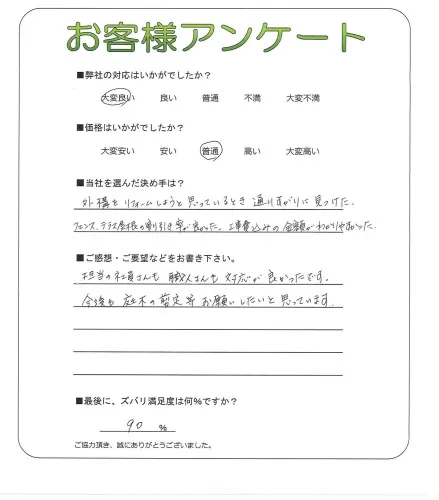 お客様アンケート
■弊社の対応はいかがでしたか？
大変良い 良い 普通 不満 大変不満
■価格はいかがでしたか？
大変安い 安い 普通 高い 大変高い
■当社を選んだ決め手は？
外構をリフォームしようと思っているとき通りすがりに見つけた.
フェンス、テラス屋根の割り引き率が良かった。工事費込みの金額がわかりやすかった.
■ご感想・ご要望などをお書き下さい。
担当の社員さんも職人さんも対応が良かったです。
今後も庭木の剪定等お願いしたいと思っています.
■最後に、ズバリ満足度は何%ですか？
90 %
ご協力頂き、誠にありがとうございました。